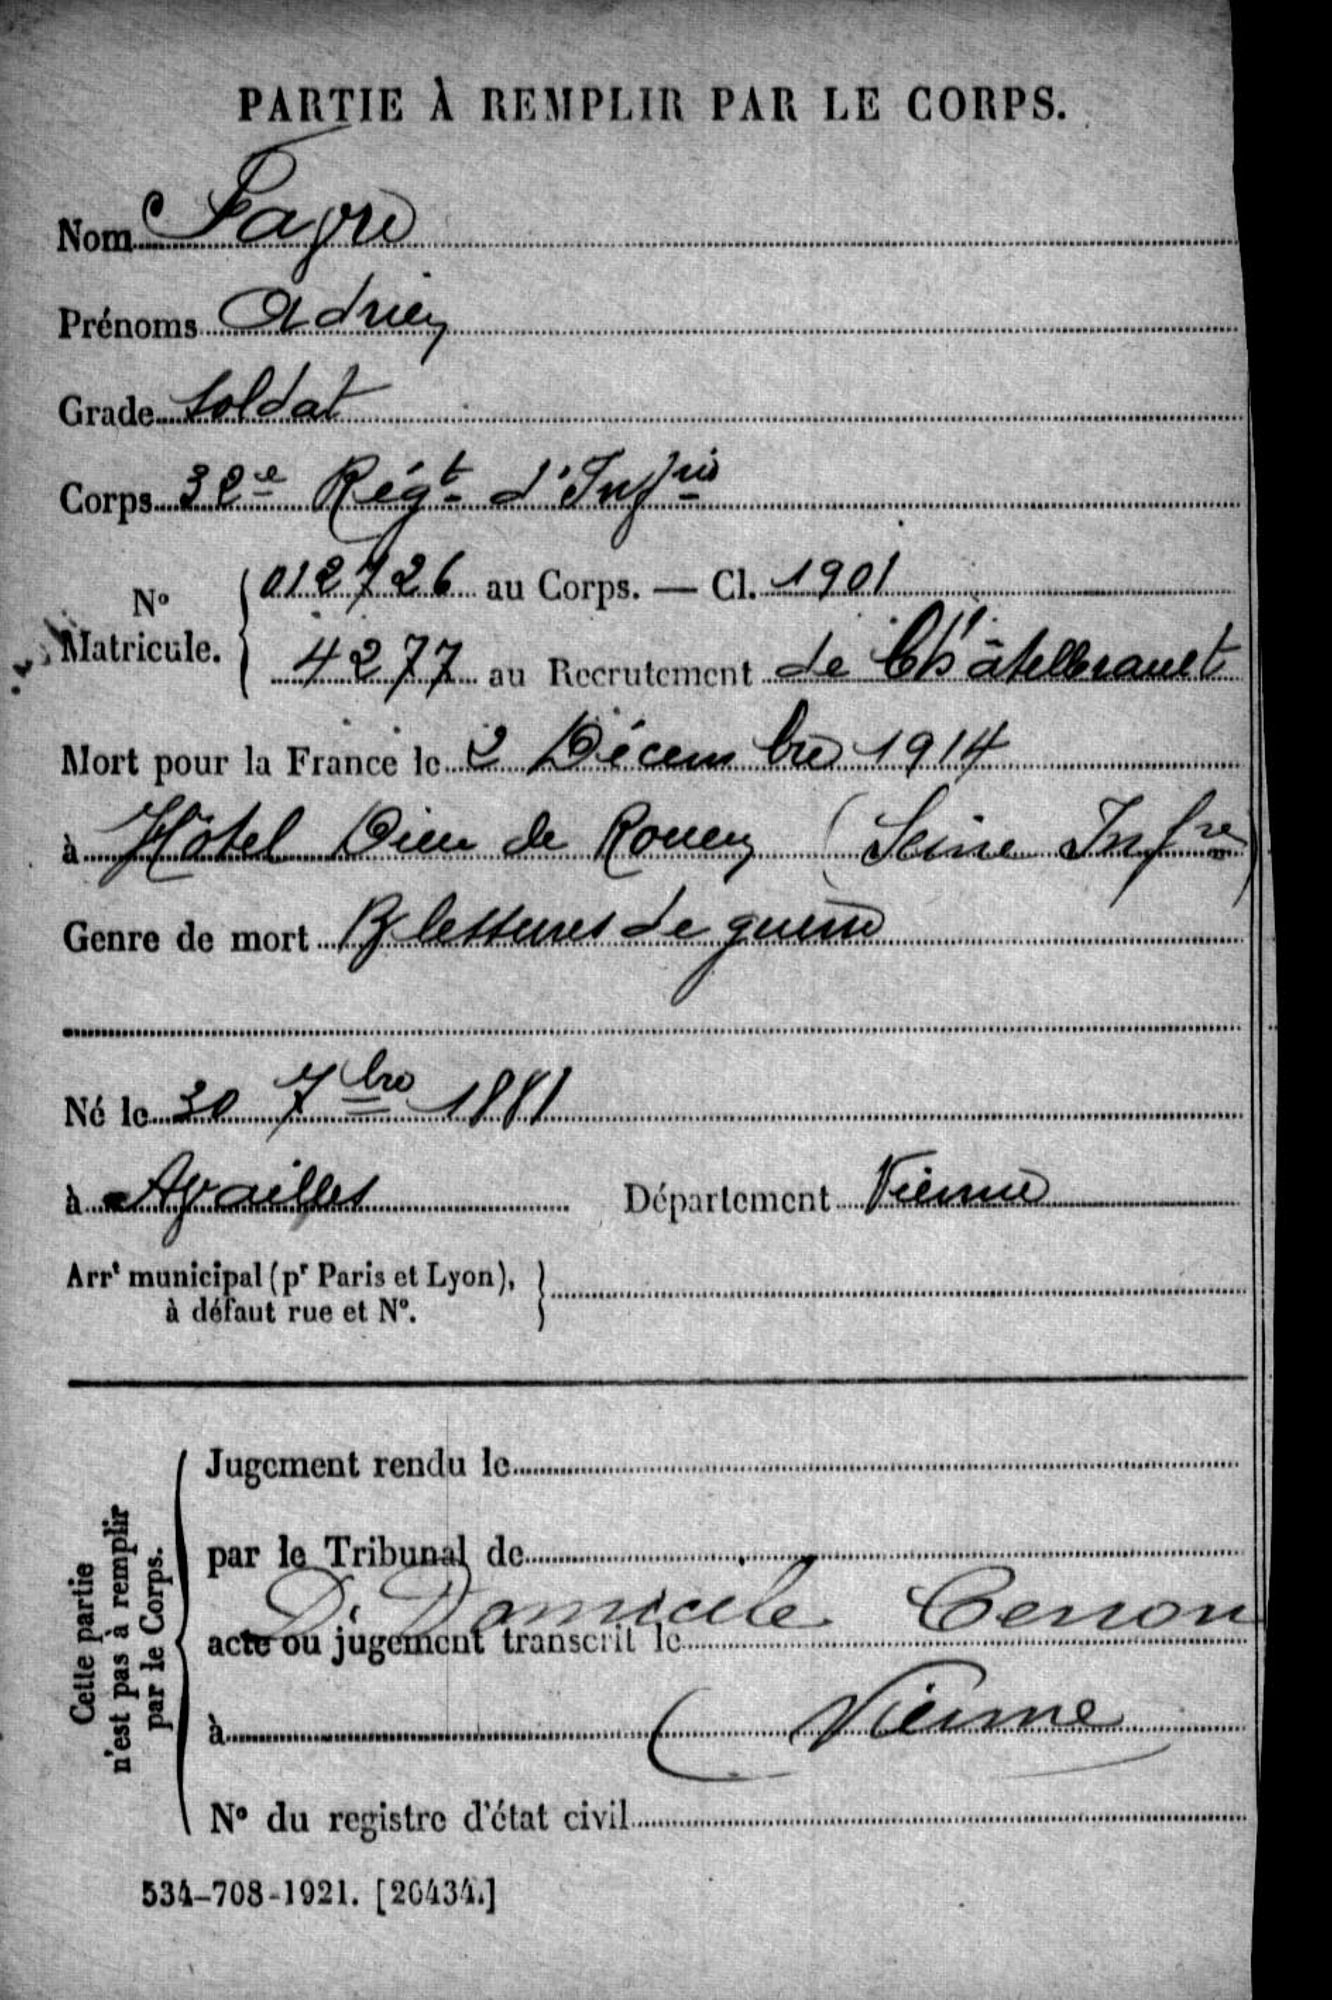 PARTIE À REMPLIR PAR LE CORPS.
Nom Favre
Prénoms Adrien
Grade Soldat
Corps 32e Régt d'Infrie
No Matricule. 012726 au Corps. — Cl. 1901
4277 au Recrutement de Châtellerault
Mort pour la France le 2 Décembre 1914
à Hôtel Dieu de Rouen (Seine Infre)
Genre de mort Blessures de guerre
Né le 30 7bre 1881
à Availles Département Vienne
Arrt municipal (pr Paris et Lyon),
à défaut rue et No.
Cette partie
n'est pas à remplir
par le Corps.
Jugement rendu le
par le Tribunal de
Dr Domicile Cenon
acte ou jugement transcrit le
à (Vienne
No du registre d'état civil
534-708-1921. [26434.]